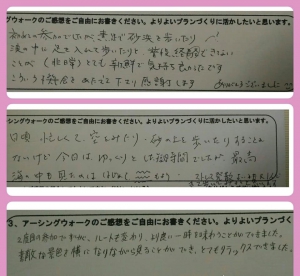 グウォークのご感想をご自由にお書きください。よりよいプランづくりに活かしたいと思います。
初めての参加でしたが 素足で砂浜を歩いたり
海の中に足を入れて歩いたりと、普段経験できない
ことが（非日常）とても新鮮で気持ち良かったです
こういう機会をあたえて下さり感謝します
ありがとうございました
シングウォークのご感想をご自由にお書きください。よりよいプランづくりに活かしたいと思います。
日頃 忙しくて、空をみたり、砂の上を歩いたりすることが
ないけど 今日は、ゆっくりとした時間でしたが、最高
海の中も
3、アーシングウォークのご感想をご自由にお書きください。よりよいプランづく
2度目の参加でしたが、ルートも変わり、より良い一時を味わうことができました。
素敵な景色を横になりながら見ることができ、とてもリラックスできました。